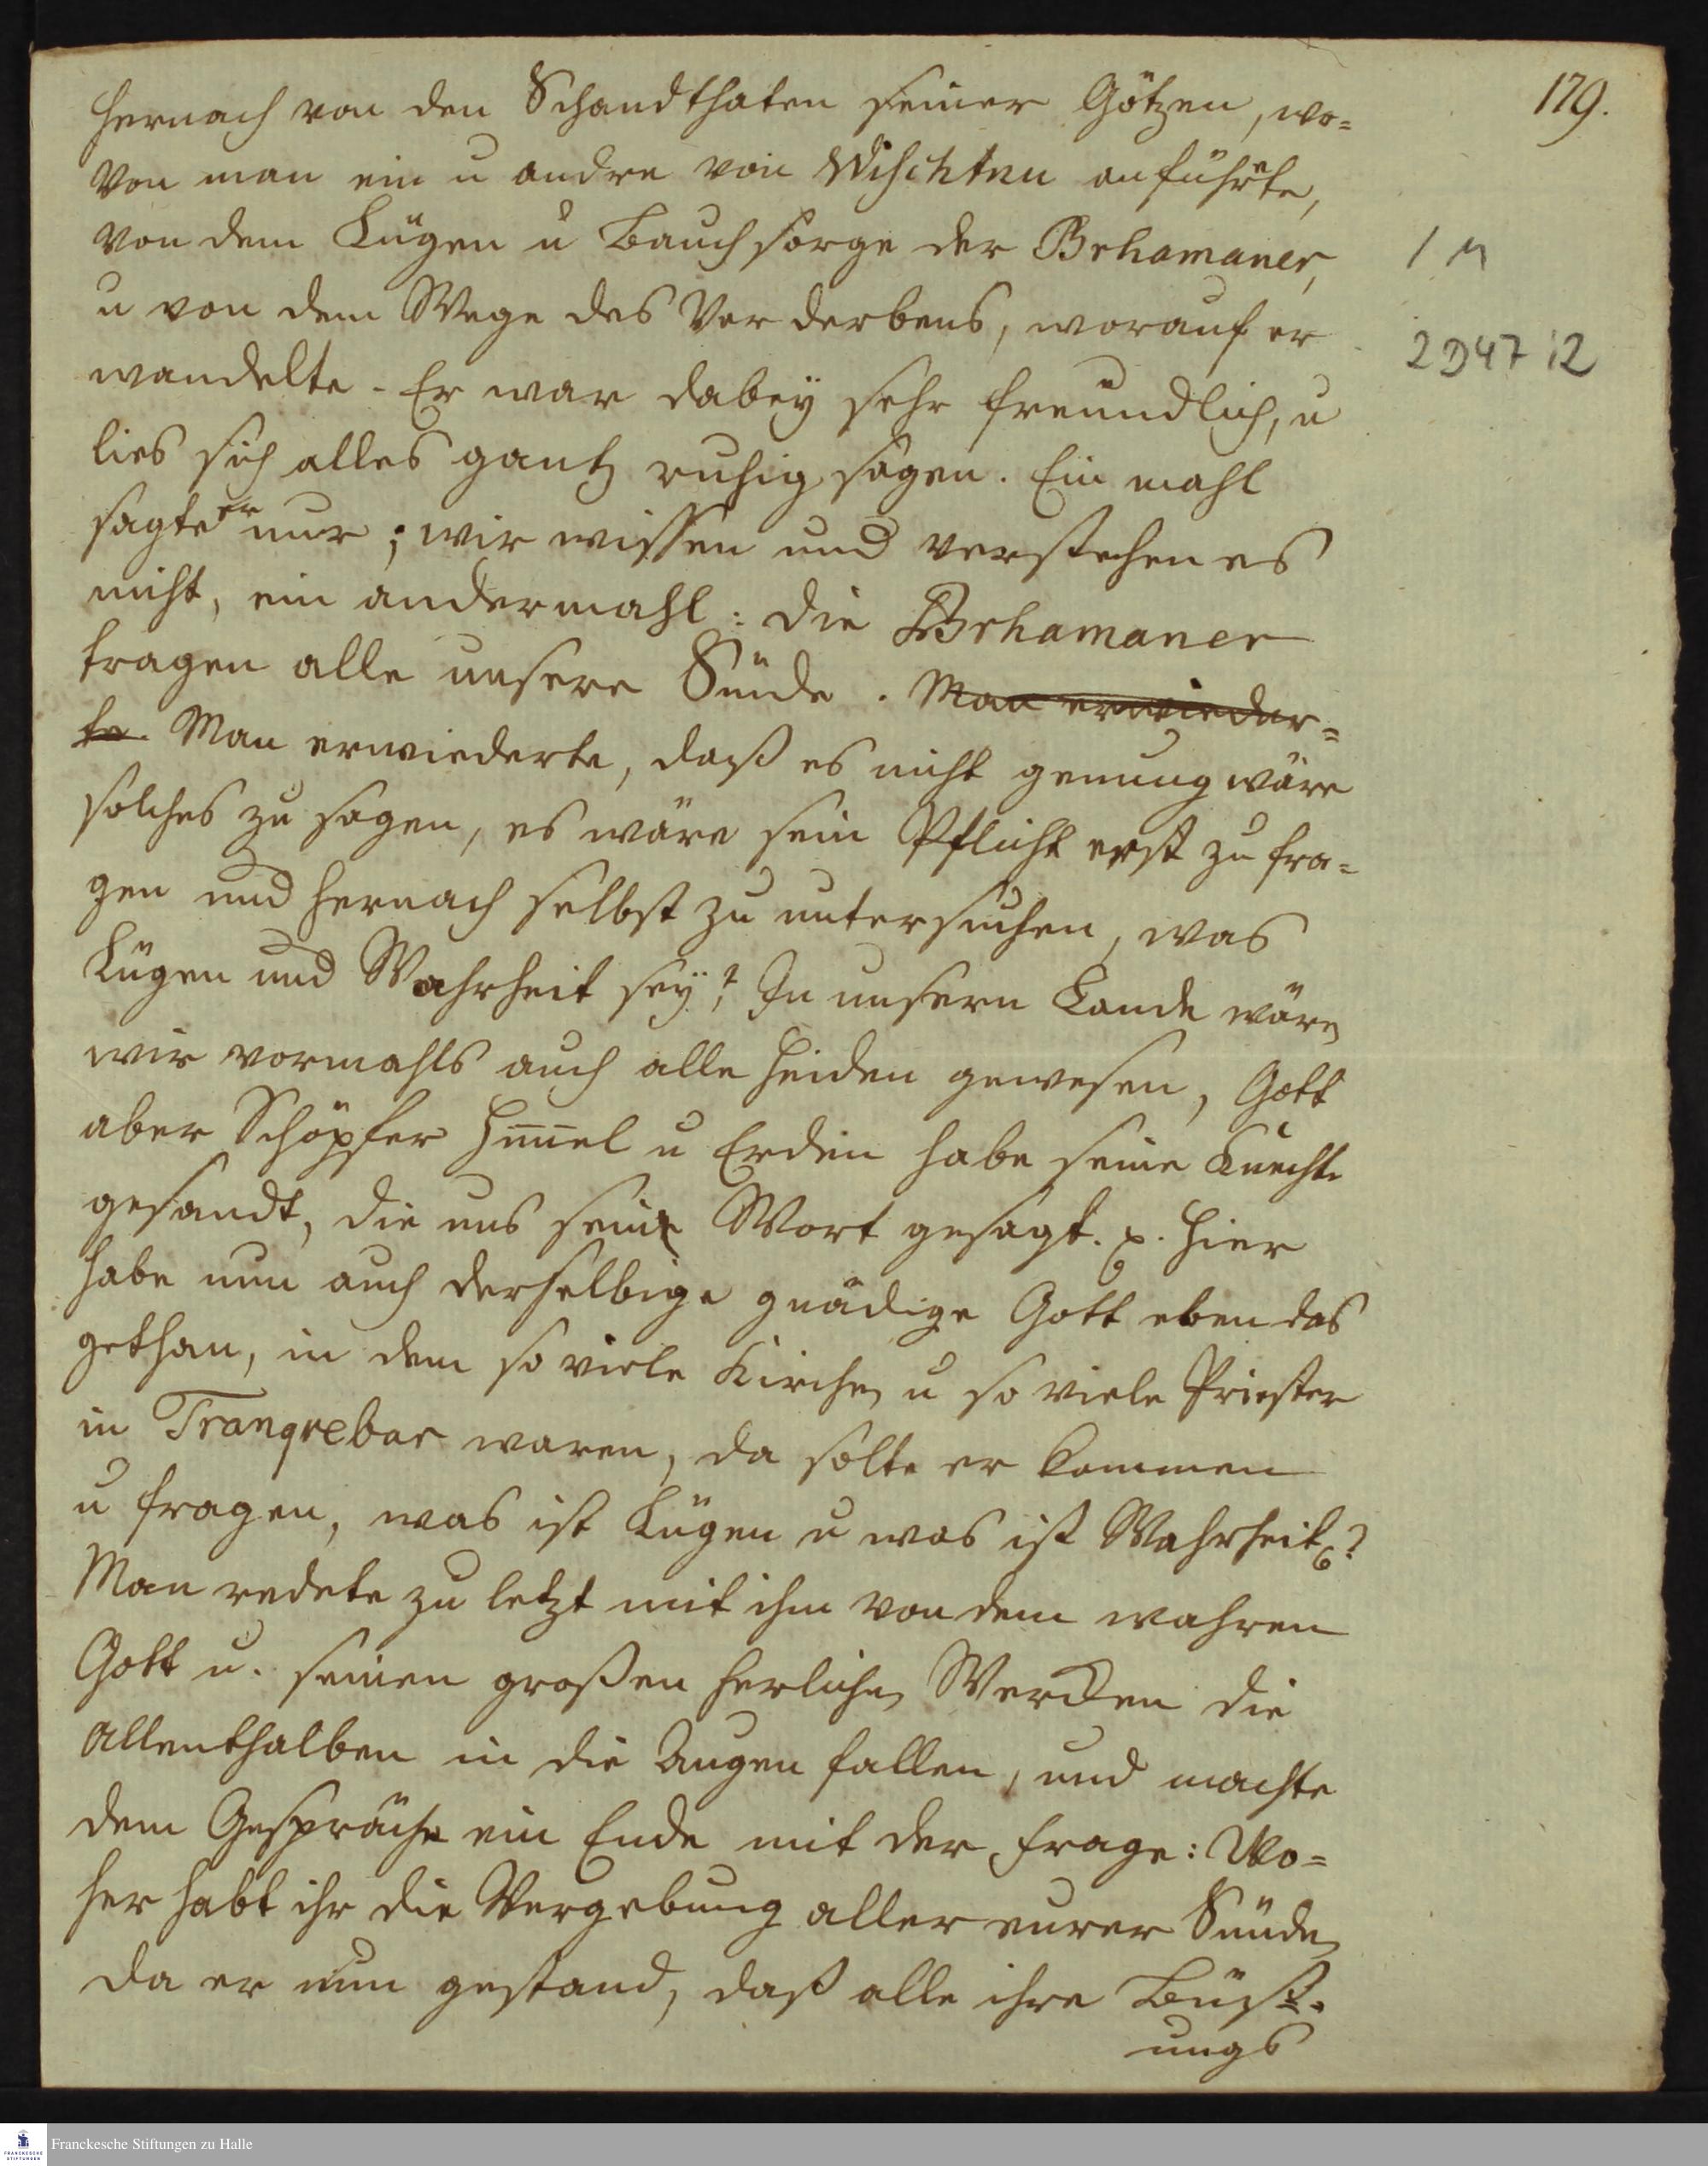 179.
hernach von den Schandthaten seiner Götzen, wo=
von man ein u andre von Wischtnu anführte,
von dem Lügen u Bauchsorge der Brhamaner,
1 M
u von dem Wege des Verderbens, worauf er
2D47 12
wandelte. Er war dabey sehr freundlich, u
lies sich alles gantz ruhig sagen. Ein mahl
sagte er nur; wir wissen und verstehen es
nicht, ein andermahl: die Brhamaner
tragen alle unsere Sünde. Man erwieder=
te. Man erwiederte, daß es nicht genung wäre
solches zu sagen, es wäre sein Pflicht erst zu fra=
gen und hernach selbst zu untersuchen, was
Lügen und Wahrheit sey? In unsern Lande wären
wir vormahls auch alle Heiden gewesen, Gott
aber Schöpfer Himmel u Erden habe seine Knechte
gesandt, die uns sein Wort gesagt. p. Hier
habe nun auch derselbige gnädige Gott eben das
gethan, in dem so viele Kirchen u so viele Priester
in Tranqvebar waren, da solte er kommen
u fragen, was ist Lügen u was ist Wahrheit?
Man redete zu letzt mit ihm von dem wahren
Gott u. seinen großen herlichen Wercken die
allenthalben in die Augen fallen, und machte
dem Gespräche ein Ende mit der Frage: Wo=
her habt ihr die Vergebung aller eurer Sünden
da er nun gestand, daß alle ihre Büß=
ungs
Franckesche Stiftungen zu Halle